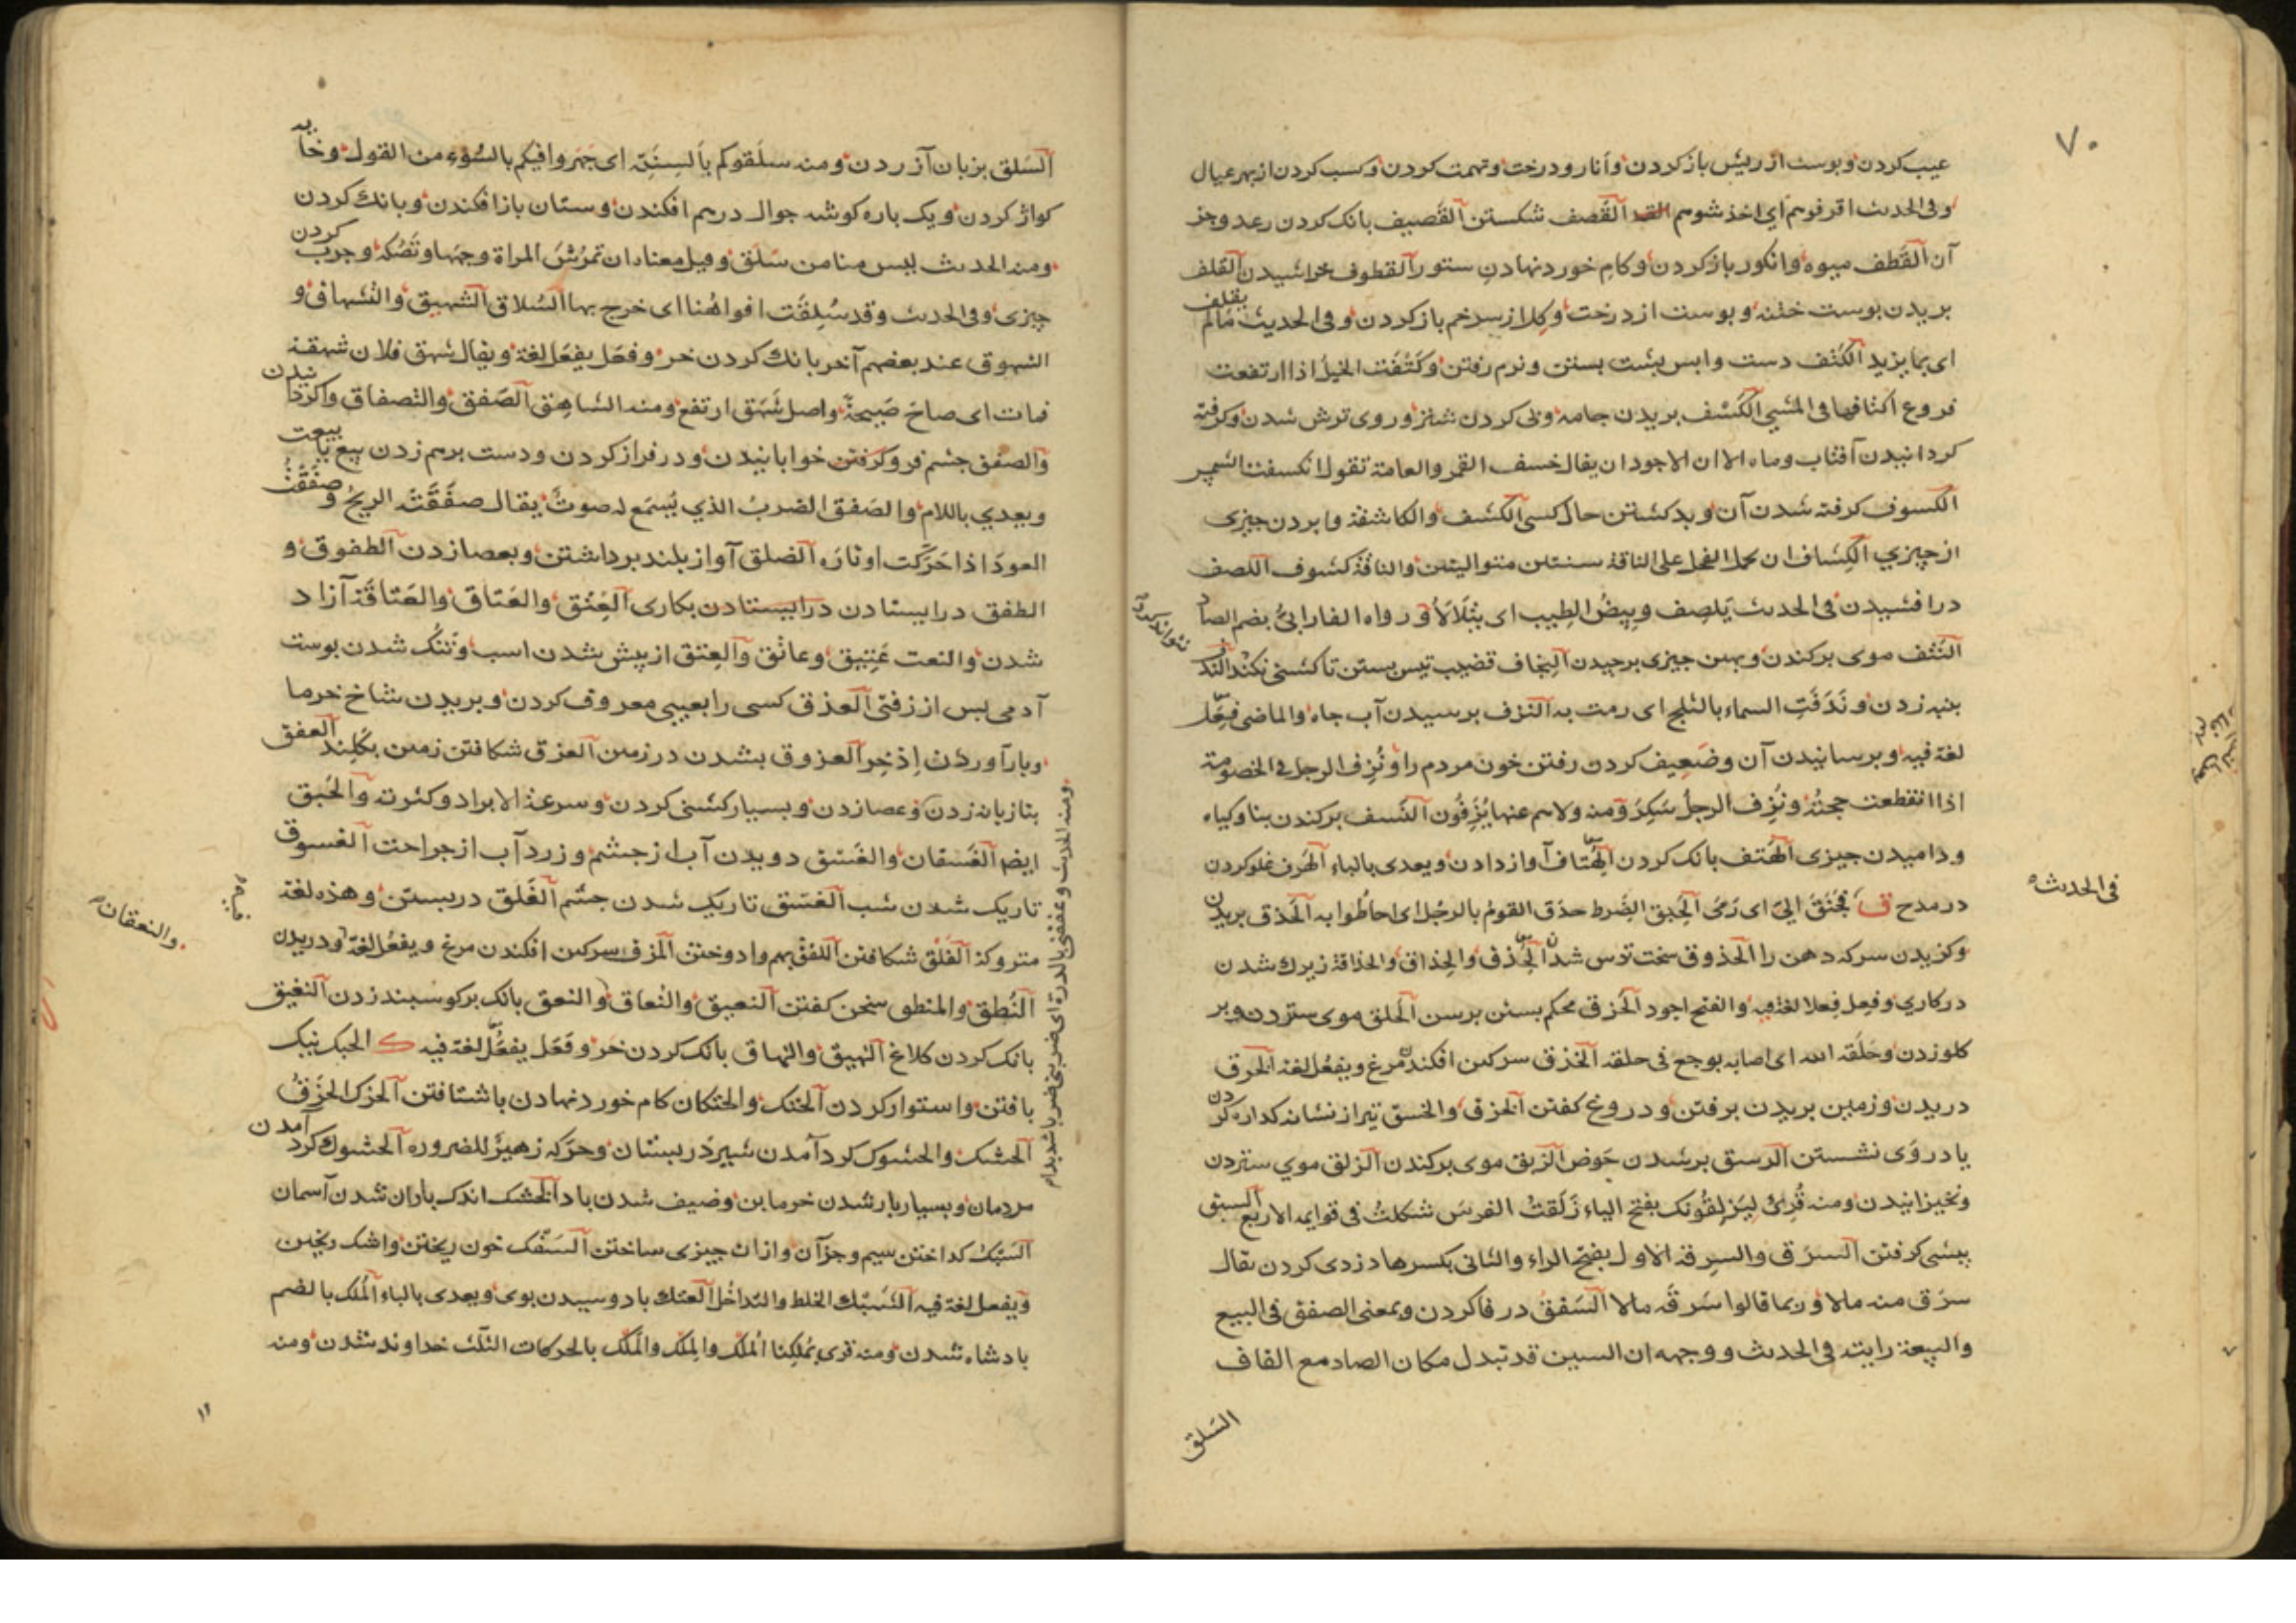 ٧٠
عیب کردن وپوست از ریش باز کردن وانار ودرخت وتهمت کردن وکسب کردن از بهر عیال
وفی الحدیث اقرفوهم ای اخذ شوهم القصف شکستن القصیف بانک کردن رعد وجز
آن القَطف میوه وانکور باز کردن وکام خورد نهادن ستور القطوف خراشیدن القلف
بریدن پوست ختنه وپوست از درخت وکلاز سر خم باز کردن وفی الحدیث مالم یقلف
ای بما یزید الکَتف دست واپس پشت بستن ونرم رفتن وکَتَفَت الخیلُ اذا ارتفعت
فروع اکتافها فی المشی الکَسف بریدن جامه وپی کردن شتر وروی ترش شدن وکرفته
کردانیدن آفتاب وماه الا ان الاجود ان یقال خسف القمر والعامة تقول انکسفت الشمس
الکسوف کرفته شدن آن وبد کشتن حال کسی الکشف والکاشفة وابردن چیزی
از چیزی الکِشاف ان یحمل الفحل علی الناقة سنتین متوالیتین والناقة کشوف اللصف
درافشیدن فی الحدیث یَلصِف وبیصُ الطیب ای یتلألأ ورواه الفارابیُّ بضم الصاد
النَتف موی برکندن وبهین چیزی برچیدن النِجاف قضیب تیس بستن تا کشنی نکند
پنبه زدن ونَدَفَتِ السماء بالثلج ای رمت به النزف برسیدن آب چاه والماضی فعِل
لغة فیه وبرسانیدن آن وضعیف کردن رفتن خون مردم را ونُزِف الرجل فی الخصومة
اذا انقطعت حجته ونُزِف الرجلُ سَکِرَ ومنه ولاهم عنها یُنزَفُون النسف برکندن بنا وکیاه
ودامیدن چیزی الهَتف بانک کردن الهُتاف آواز دادن ویعدی بالباء الهَرف غلو کردن
در مدح ق الحَبِق الضَرط حذق القومُ بالرجُل ای احاطُوا به الحَذق بریدن
فی الحدیث
وکزیدن سرکه دهن را الحذوق سخت ترش شدن الحِذق والحِذاق والحذاقة زیرک شدن
در کاری وفعِل فِعلا لغة فیه والفتح اجود الحَزق محکم بستن برسن الحَلق موی ستردن وبر
کلو زدن وحَلَقه الله ای اصابه بوجع فی حلقه الخذق سرکین افکندن مرغ ویفعُل لغة الخرق
دریدن وزمین بریدن برفتن ودروغ کفتن الخزق والخسق تیر از نشانه کداره کردن
یا در وَی نشستن الرسق برشدن حَوض الزبق موی برکندن الزلق موی ستردن
وبخیزانیدن ومنه قُرِئَ لیَزلِقُونَک بفتح الیاء زَلَقتُ الفرسَ شکلتُ فی قوایمه الاربع السبق
پیشی کرفتن السَرَق والسرقة الاول بفتح الراء والثانی بکسرها دزدی کردن یقال
سرَق منه مالا وربما قالوا سَرَقَه مالا السَفق در فا کردن وبمعنی الصفق فی البیع
والبیعة رایته فی الحدیث ووجهه ان السین قد تبدل مکان الصاد مع القاف
السَلق
السَلق بزبان آزردن ومنه سلَقوکم بألسِنَةٍ ای جَهَروا فیکم بالسُوء من القول وخایه
کواژ کردن ویک باره کوشه جوال در هم افکندن وستان باز افکندن وبانک کردن
ومنه الحدیث لیس منا من سَلَق وقیل معناه ان تَمرُشَ المراة وجهها وتَصُکه وچرب کردن
چیزی وفی الحدیث وقد سُلِقَت افواهُنا ای خرج بها السُلاق الشهیق والشهاق و
الشهوق عند بعضهم آخر بانک کردن خر وفعَل یفعَل لغة ویقال شهق فلان شهقة
فمات ای صاح صَیحةً واصل شَهَق ارتفع ومنه الشاهق الصَفق والتصفاق واکردانیدن
والصفق چشم فرو کرفتن خوابانیدن ودر فراز کردن ودست بر هم زدن ببیع یا ببیعت
ویعدی باللام والصَفق الضربُ الذی یُسمَع له صوتٌ یقال صفَّقَته الریحُ و صفَّقتُ
العودَ اذا حَرَّکت اوتارَه الصَلق آواز بلند برداشتن وبعصا زدن الطفوق و
الطفق در ایستادن در ایستادن بکاری العِتق والعَتاق والعَتاقة آزاد
شدن والنعت عَتِیق وعاتق والعِتق از پیش شدن اسب وتنک شدن پوست
آدمی پس از زفتی العذق کسی را بعیبی معروف کردن وبریدن شاخ خرما
وبار آوردن اِذخِر العزوق بشدن در زمین العزق شکافتن زمین بکلند العفق
بتازیانه زدن وعصا زدن وبسیار کشنی کردن وسرعة الایراد وکثرته والحَبق
ومنه الحدیث وعفقنی بالدرة ای ضربنی ضربا شدیدا م
ایضا الغَسقان والغَسق دویدن آب از چشم وزرد آب از جراحت الغسوق
تاریک شدن شب الغسَق تاریک شدن چشم الغَلق در بستن وهذه لغة
والنعقان
متروکة الفَلْق شکافتن اللفق بهم وا دوختن المزق سرکین افکندن مرغ ویفعُل لغة ودریدن
النُطق والمنطق سخن کفتن النعیق والنُعاق والنعق بانک بر کوسبند زدن النغیق
بانک کردن کلاغ النهیق والنهاق بانک کردن خر وفَعَل یفعُل لغة فیه ک الحبک نیک
بافتن واستوار کردن الحتک والحتکان کام خورد نهادن باشتافتن الحزک الحزقُ
الحشک والحشوک کرد آمدن شیر در پستان وحرّکه زهیرٌ للضروره الحشوک کرد آمدن
مردمان وبسیار بار شدن خرمابن وضیف شدن باد الحَشک اندک باران شدن آسمان
السَبک کداختن سیم وجز آن واز ان چیزی ساختن السَفک خون ریختن واشک ریختن
ویفعل لغة فیه الشَبک الخلط والتداخُل العتک بادوسیدن بوی ویعدی بالباء المُلک بالضم
پادشاه شدن ومنه قری بمُلکِنا المُلک والمِلک والمَلک بالحرکات الثلث خداوند شدن ومنه